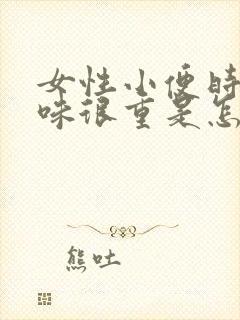 女性小便时
味很重是怎
熊吐